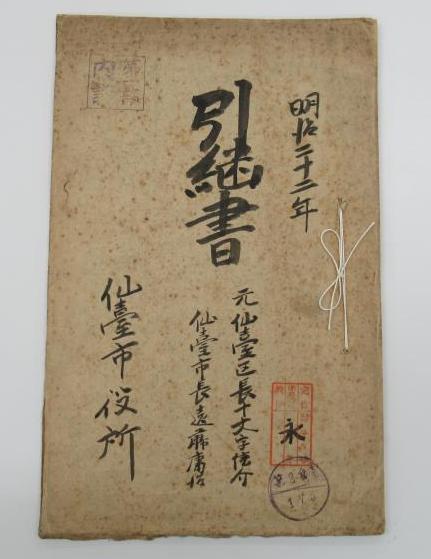 明治二十二年
引継書
元仙臺区長十文字信介
仙臺市長遠藤庸治
仙臺市役所
永